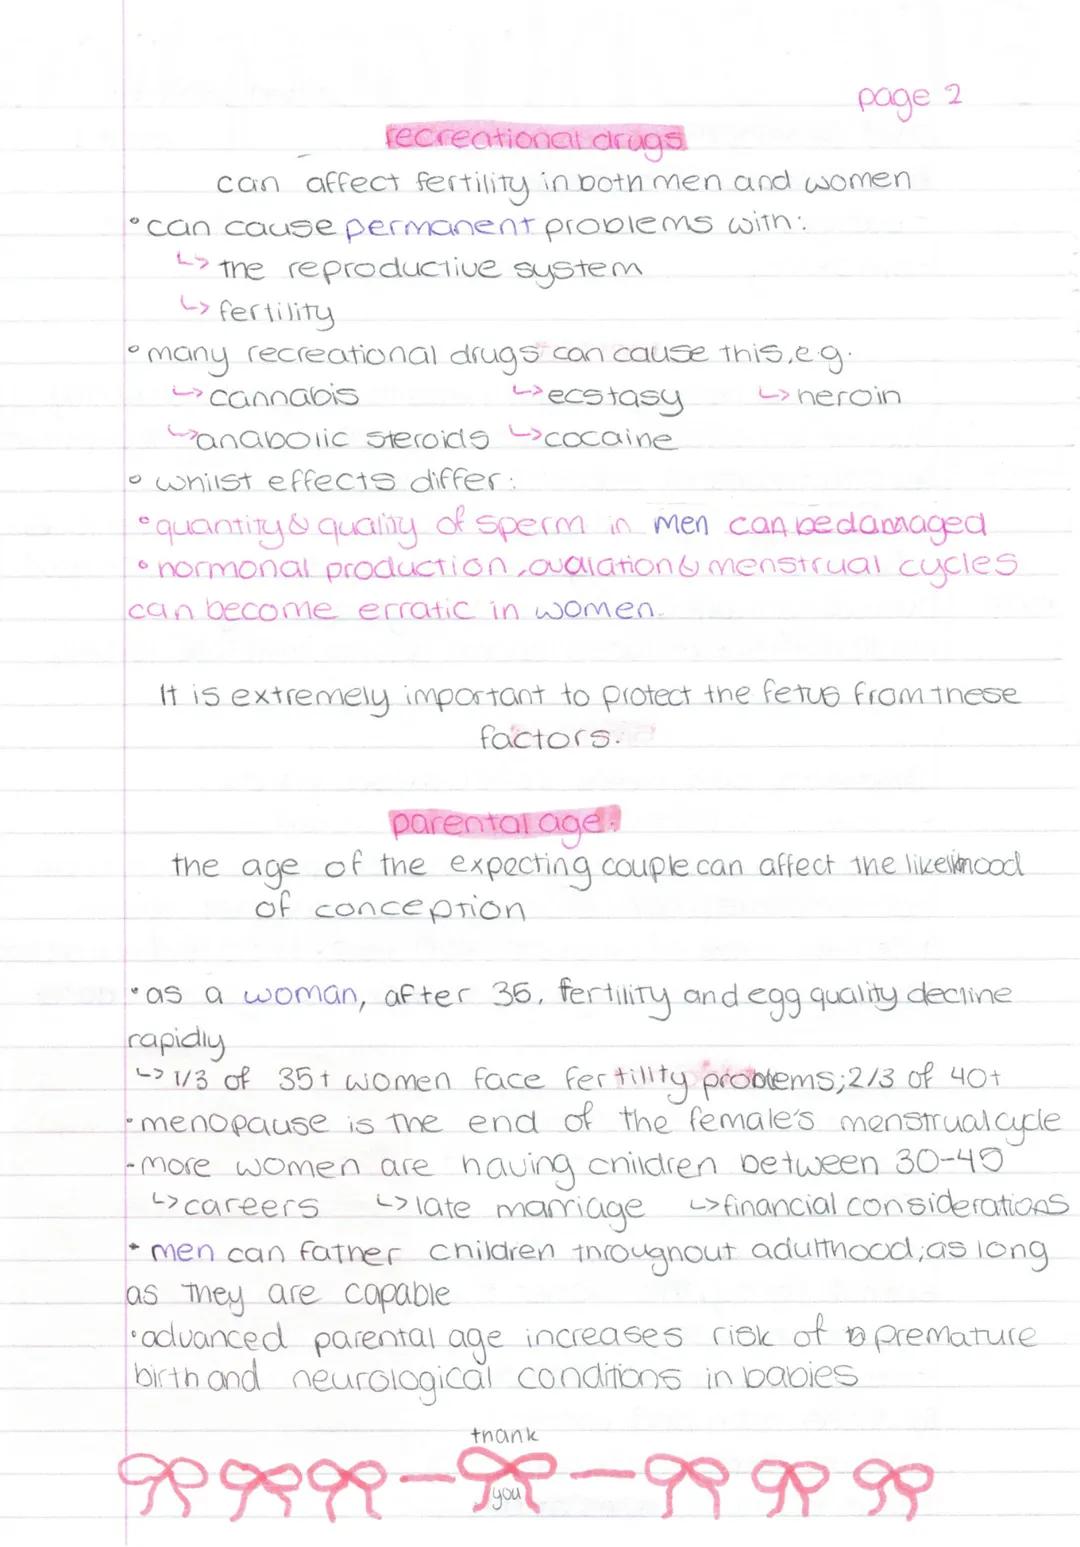 page 2
recreational drugs
can affect fertility in both men and women
• can cause permanent problems with:
↳ the reproductive system
↳ fertility
• many recreational drugs can cause this, e.g.
↳ cannabis ↳ ecstasy ↳ heroin
↳ anabolic steroids ↳ cocaine
• whilst effects differ:
• quantity & quality of sperm in men can be damaged
• hormonal production, ovulation & menstrual cycles
can become erratic in women.
It is extremely important to protect the fetus from these
factors.
parental age:
the age of the expecting couple can affect the likelihood
of conception
• as a woman, after 35, fertility and egg quality decline
rapidly
↳ 1/3 of 35+ women face fertility problems; 2/3 of 40+
• menopause is the end of the female's menstrual cycle
• more women are having children between 30-45
↳ careers ↳ late marriage ↳ financial considerations
• men can father children throughout adulthood; as long
as they are capable
• advanced parental age increases risk of premature
birth and neurological conditions in babies
thank
you